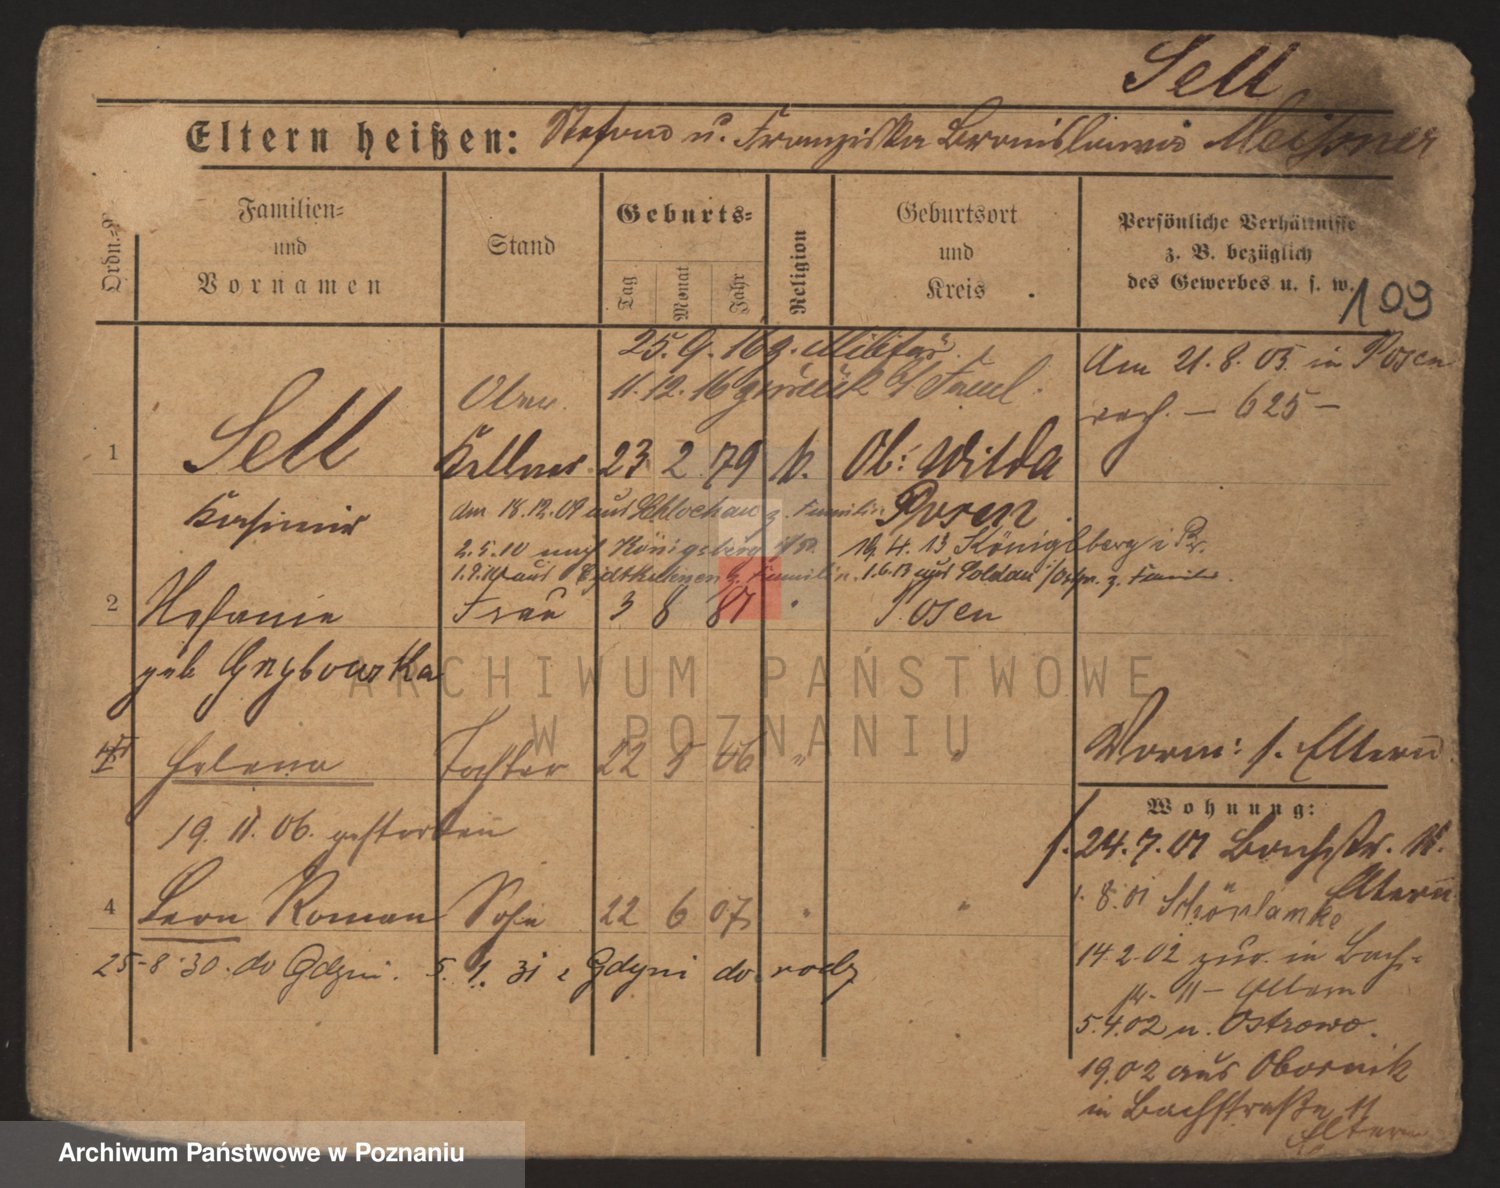 Sell
Eltern heißen: Stefan u. Franziska Bronislawa Meißner
Ordn.
Familien-
und
Vornamen
Stand
Geburts-
Tag
Monat
Jahr
Religion
Geburtsort
und
Kreis
Persönliche Verhältnisse
z. B. bezüglich
des Gewerbes u. s. w.
109
25. 9. 16 z. Militär
11. 12. 16 zurück
Am 21. 8. 05 in Posen
— 625 —
Ober
1 Sell Kellner 23 2 79 k. Ob: Wilda
Kasimir
am 18.12.09 aus Schlochau z. Familie Posen
2.5.10 nach Königsberg 19.4.13 Königsberg i Pr.
aus Eydtkuhnen z. Familie. 1.6.13 aus Soldau z. Familie
2 Stefanie Frau 3 8 81 " Posen
geb Grybowska
Helena Tochter 22 5 06 " "
19. 11. 06. gestorben
Vorm: s. Eltern
Wohnung:
24.7.01 Bachstr. 11.
Eltern
1. 8. 01 Schönlanke
4 Leon Roman Sohn 22 6 07 " "
25-8 30. do Gdyni. 5. 1. 31 z Gdyni do rodz
14 2 02 zur. in Bach-
str. 11 - Eltern
5.4.02 n. Ostrowo.
19.02 aus Obornik
in Bachstraße 11
Eltern
ARCHIWUM PAŃSTWOWE
W POZNANIU
Archiwum Państwowe w Poznaniu